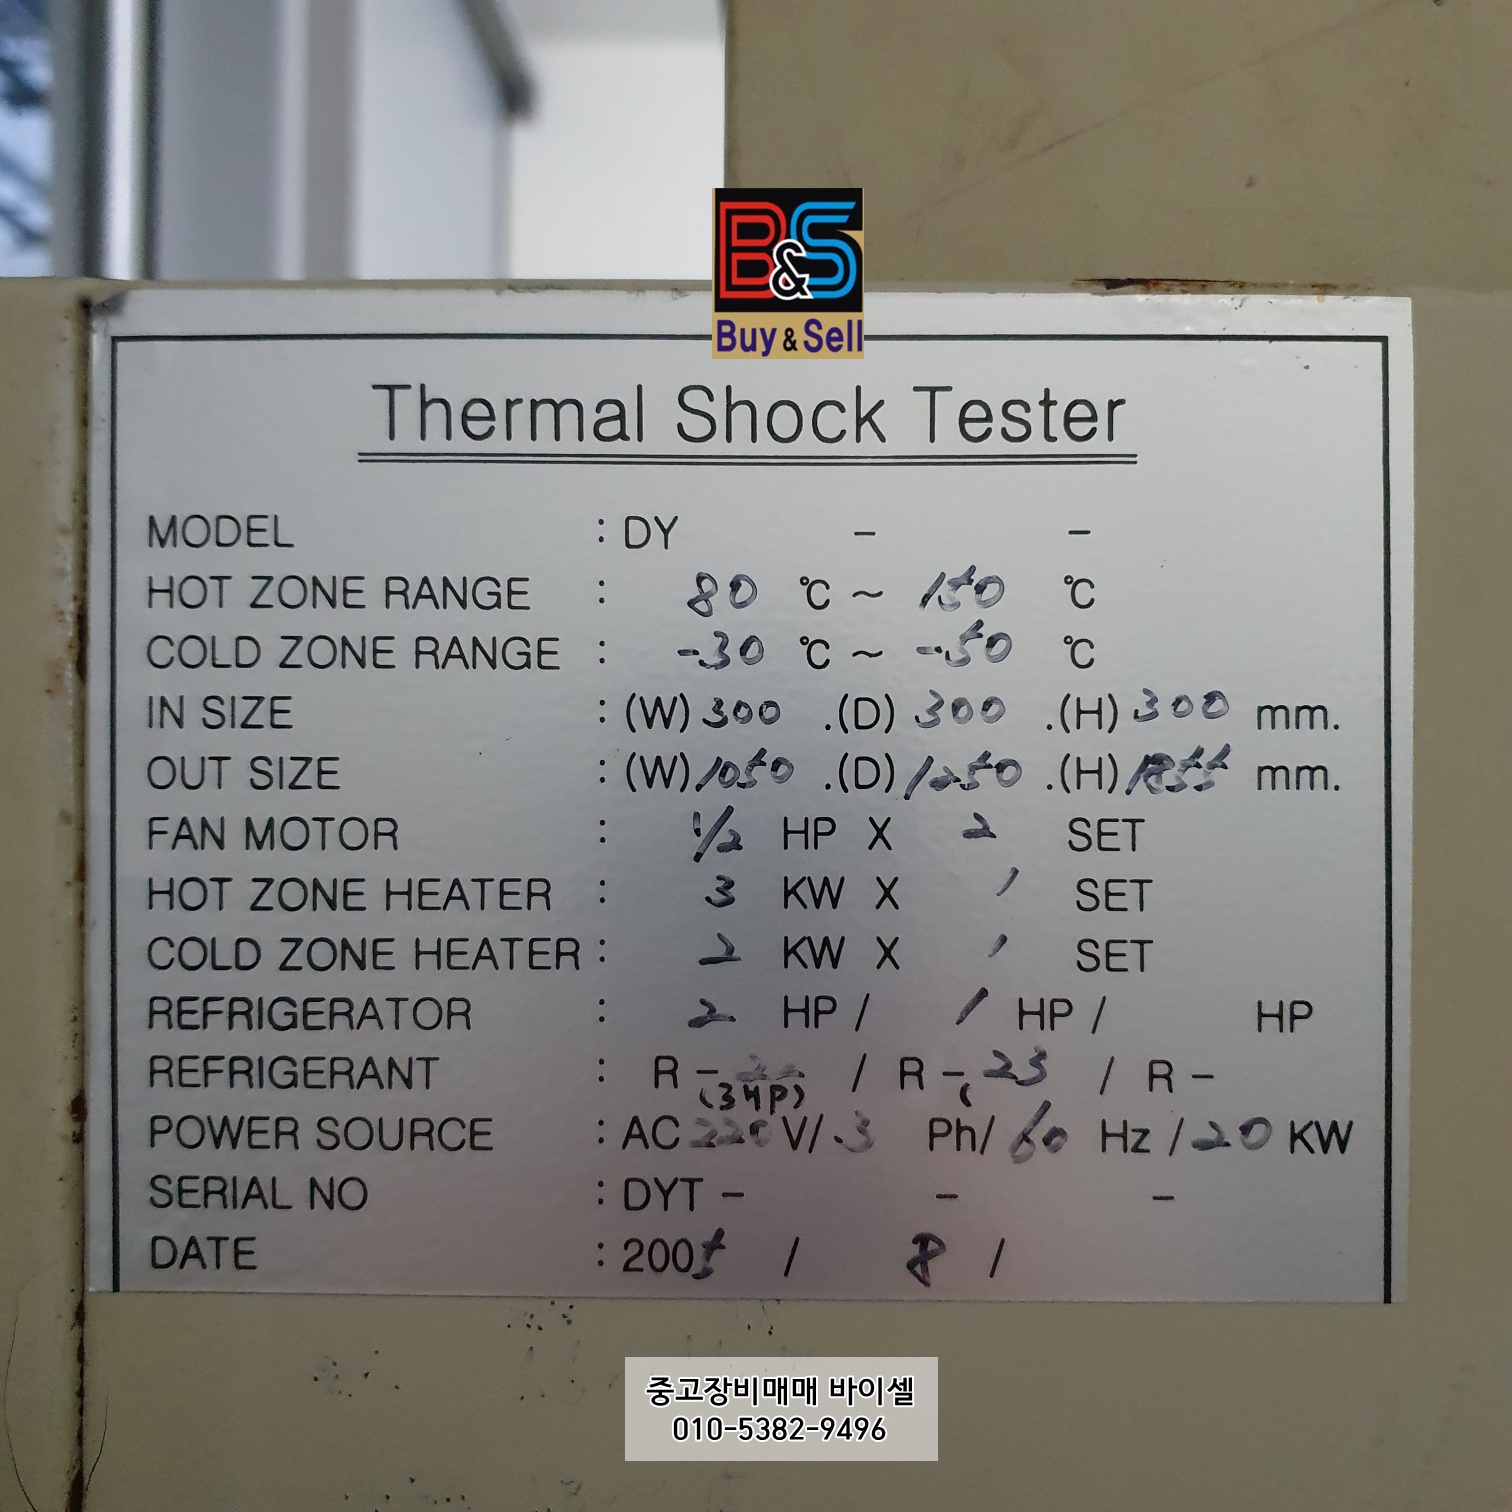 B&S
Buy & Sell
Thermal Shock Tester
MODEL : DY - -
HOT ZONE RANGE : 80 ℃ ~ 150 ℃
COLD ZONE RANGE : -30 ℃ ~ -50 ℃
IN SIZE : (W) 300 .(D) 300 .(H) 300 mm.
OUT SIZE : (W) 1050 .(D) 1250 .(H) 1855 mm.
FAN MOTOR : 1/2 HP X 2 SET
HOT ZONE HEATER : 3 KW X 1 SET
COLD ZONE HEATER : 2 KW X 1 SET
REFRIGERATOR : 2 HP / 1 HP / HP
REFRIGERANT : R - / R - 23 / R -
(3HP) (
POWER SOURCE : AC 220 V/ 3 Ph/ 60 Hz / 20 KW
SERIAL NO : DYT - - -
DATE : 2005 / 8 /
중고장비매매 바이셀
010-5382-9496